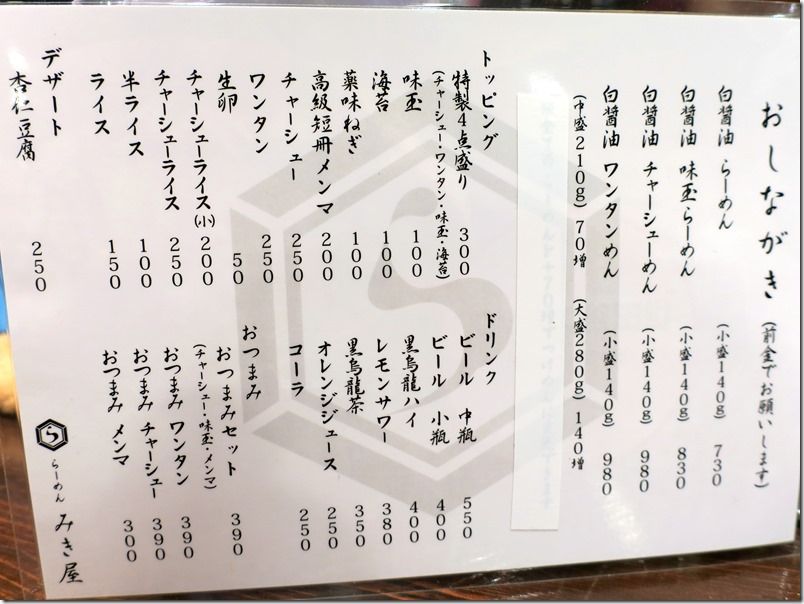 おしながき (前金でお願いします)
白醤油 らーめん (小盛140g) 730
白醤油 味玉らーめん (小盛140g) 830
白醤油 チャーシューめん (小盛140g) 980
白醤油 ワンタンめん (小盛140g) 980
(中盛210g) 70増 (大盛280g) 140増
トッピング
特製4点盛り 300
(チャーシュー・ワンタン・味玉・海苔)
味玉 100
海苔 100
薬味ねぎ 100
高級短冊メンマ 200
チャーシュー 250
ワンタン 250
生卵 50
チャーシューライス(小) 200
チャーシューライス 250
半ライス 100
ライス 150
デザート
杏仁豆腐 250
ドリンク
ビール 中瓶 550
ビール 小瓶 400
黒烏龍ハイ 400
レモンサワー 380
黒烏龍茶 350
オレンジジュース 250
コーラ 250
おつまみ
おつまみセット 390
(チャーシュー・味玉・メンマ)
おつまみ ワンタン 390
おつまみ チャーシュー 390
おつまみ メンマ 300
らーめん みき屋